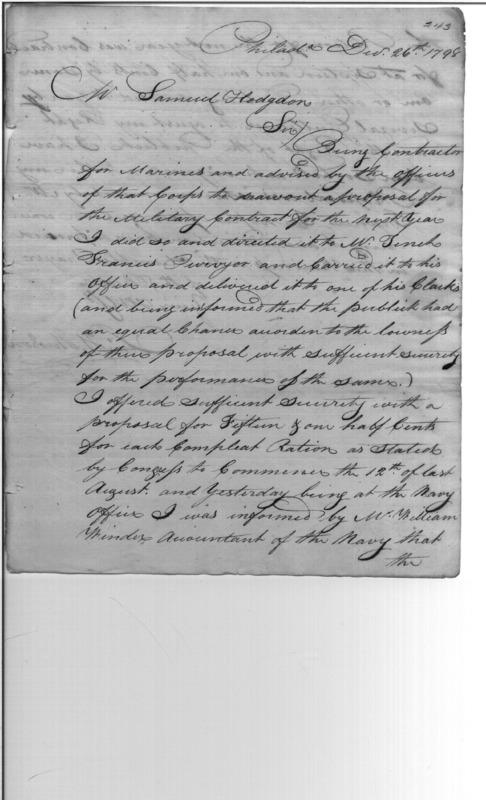 243
Philada. Decr. 26th. 1798
Mr. Samuel Hodgdon
Sir/ Being Contractor
for Marines and advised by the officers
of that Corps to draw out a proposal for
the Military Contract for the next Year
I did so and directed it to Mr. Tench
Francis Purveyor and Carried it to his
Office and delivered it to one of his Clarks
(and being informed that the publick had
an equal Chance acorden to the lowness
of their proposal with sufficent security
for the performance of the same.)
I offered sufficent security with a
proposal for Fifteen & one half Cents
for each Compleat Ration as Stated
by Congess to Commence the 12th. of last
August. and Yesterday being at the Navy
Office I was informed, by Mr. William
Winder, Acountant of the Navy that
the